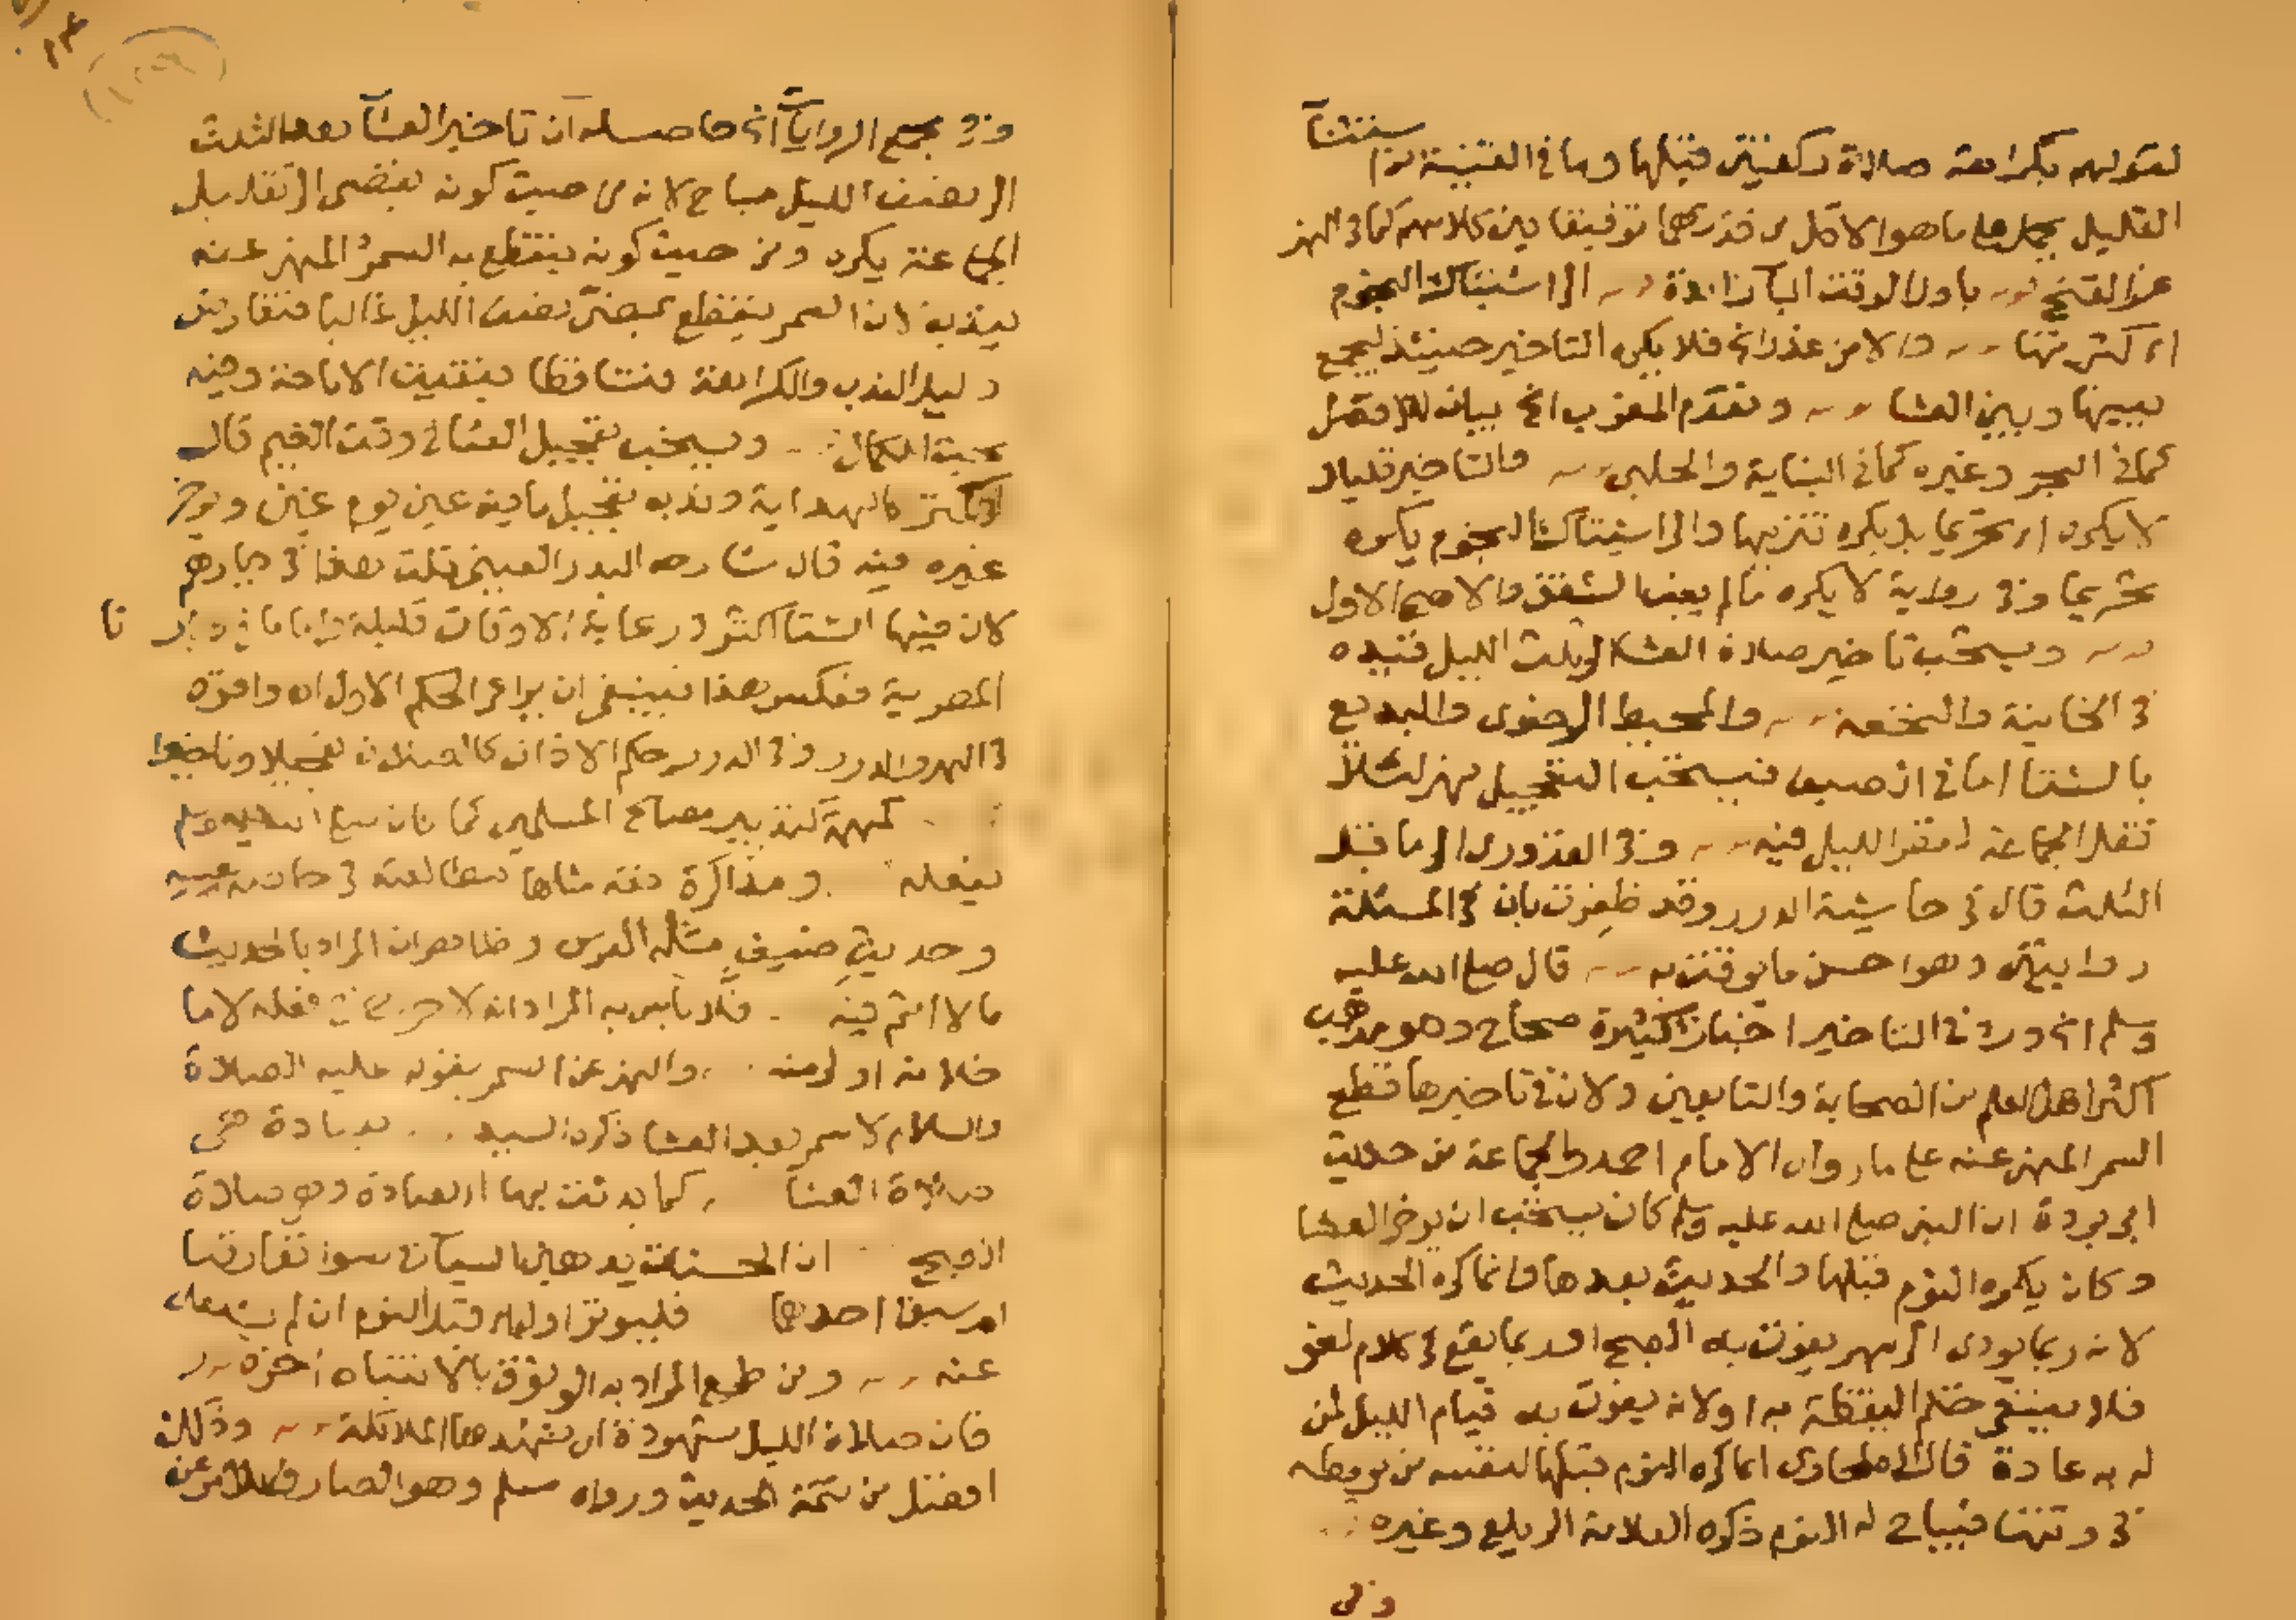 لقولهم بكراهة صلاة ركعتين قبلها وما في القنية من استثناء
القليل يحمل على ما هو الاقل من قدرهما توفيقا بين كلامهم كما في النهر
عن الفتح باول الوقت الى اشتباك النجوم
اي كثرتها والا من عذر الخ فلا يكره التاخير حينئذ ليجمع
بينها وبين العشا وتقدم المغرب الخ بيان للافضل
كما في البحر وغيره كما في البناية والحلبي والتاخير قليلا
لا يكره اي تحريما بل يكره تنزيها والى اشتباك النجوم يكره
تحريما وفي رواية لا يكره ما لم يغب الشفق والاصح الاول
ويستحب تاخير صلاة العشا الى ثلث الليل قيده
في الخانية والتحفة والمحيط الرضوى والبدايع
بالشتا اما في الصيف فيستحب التعجيل نهر لئلا
تقل الجماعة لقصر الليل فيه وفي القدورى الى ما قبل
الثلث قال في حاشية الدرر وقد ظفرت بان في المسئلة
روايتين وهو احسن ما يوفق به قال صلى الله عليه
وسلم الخ ورد في التاخير اخبار كثيرة صحاح وهو مذهب
اكثر اهل العلم من الصحابة والتابعين ولان في تاخيرها قطع
السمر المنهى عنه على ما رواه الامام احمد والجماعة من حديث
ابى بردة ان النبى صلى الله عليه وسلم كان يستحب ان يوخر العشا
وكان يكره النوم قبلها والحديث بعدها وانما كره الحديث
لانه ربما يودى الى سهر يفوت به الصبح او ربما يقع في كلام لغو
فلا ينبغى ختم اليقظة به او لانه يفوت به قيام الليل لمن
له به عادة قال الطحاوى انما كره النوم قبلها لمن خشى
في وقتها فيباح له النوم ذكره العلامة الزيلعى وغيره
وفي
وفي مجمع الروايات الخ حاصله ان تاخير العشا بعد الثلث
الى نصف الليل مباح لانه من حيث كونه يفضى الى تقليل
الجماعة يكره ومن حيث كونه ينقطع به السمر المنهى عنه
يندب لان السمر ينقطع بمضى نصف الليل غالبا فتعارض
دليل الندب والكراهة فتساقطا فبقيت الاباحة وفيه
بحث الكمال ويستحب تعجيل العشا في وقت الغيم قال
في الكنز كالهداية وندب تعجيل ما فيه عين يوم غين ويوخر
غيره فيه قال شارحه البدر العينى قلت هذا في ديارهم
لان فيها الشتا اكثر ورعاية الاوقات قليلة واما في ديارنا
المصرية فعكس هذا فينبغى ان يراعى الحكم الاول اه واقره
في النهر والدرر وفي الدرر حكم الاذان كالصلاة تعجيلا وتاخيرا
لمهم كتدبير مصالح المسلمين كما كان صلى الله عليه وسلم
يفعله ومذاكرة فقه مثلها مطالعته في حادثة
وحديث ضيف مثله العرس وظاهره ان المراد بالحديث
ما لا اثم فيه فلا باس به المراد انه لا حرج في فعله لا ما
خلافه اولى منه والنهى عن السمر بقوله عليه الصلاة
والسلام لا سمر بعد العشا ذكره السيد بعبادة هى
صلاة العشا كما بدئت بها اى العبادة وهى صلاة
الصبح ان الحسنات يذهبن السيات سوا تقارنتا
او سبق احدهما فليوتر اوله قبل النوم ان لم
عنه ومن طمع المراد به الوثوق بالانتباه اخره
فان صلاة الليل مشهودة اى تشهدها الملائكة وذلك
افضل من تتمة الحديث ورواه مسلم وهو الصارف للامر عن